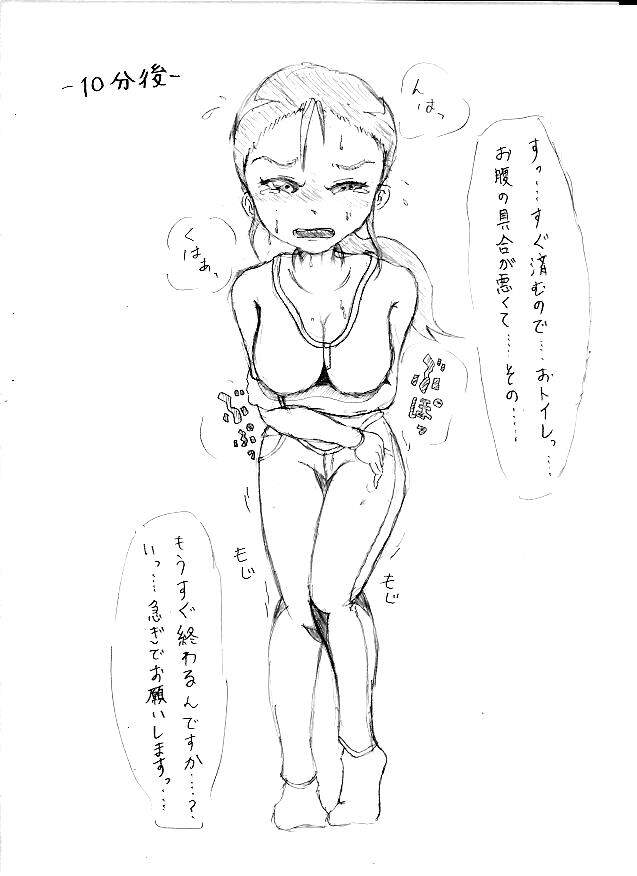 -10分後-
んはっ
すっ……すぐ済むので……おトイレっ……
お腹の具合が悪くて……その……
くはぁっ
ぶぽっ
ぶぷっ
もじ
もじ
もうすぐ終わるんですか……？
いっ……急ぎでお願いしますっ……